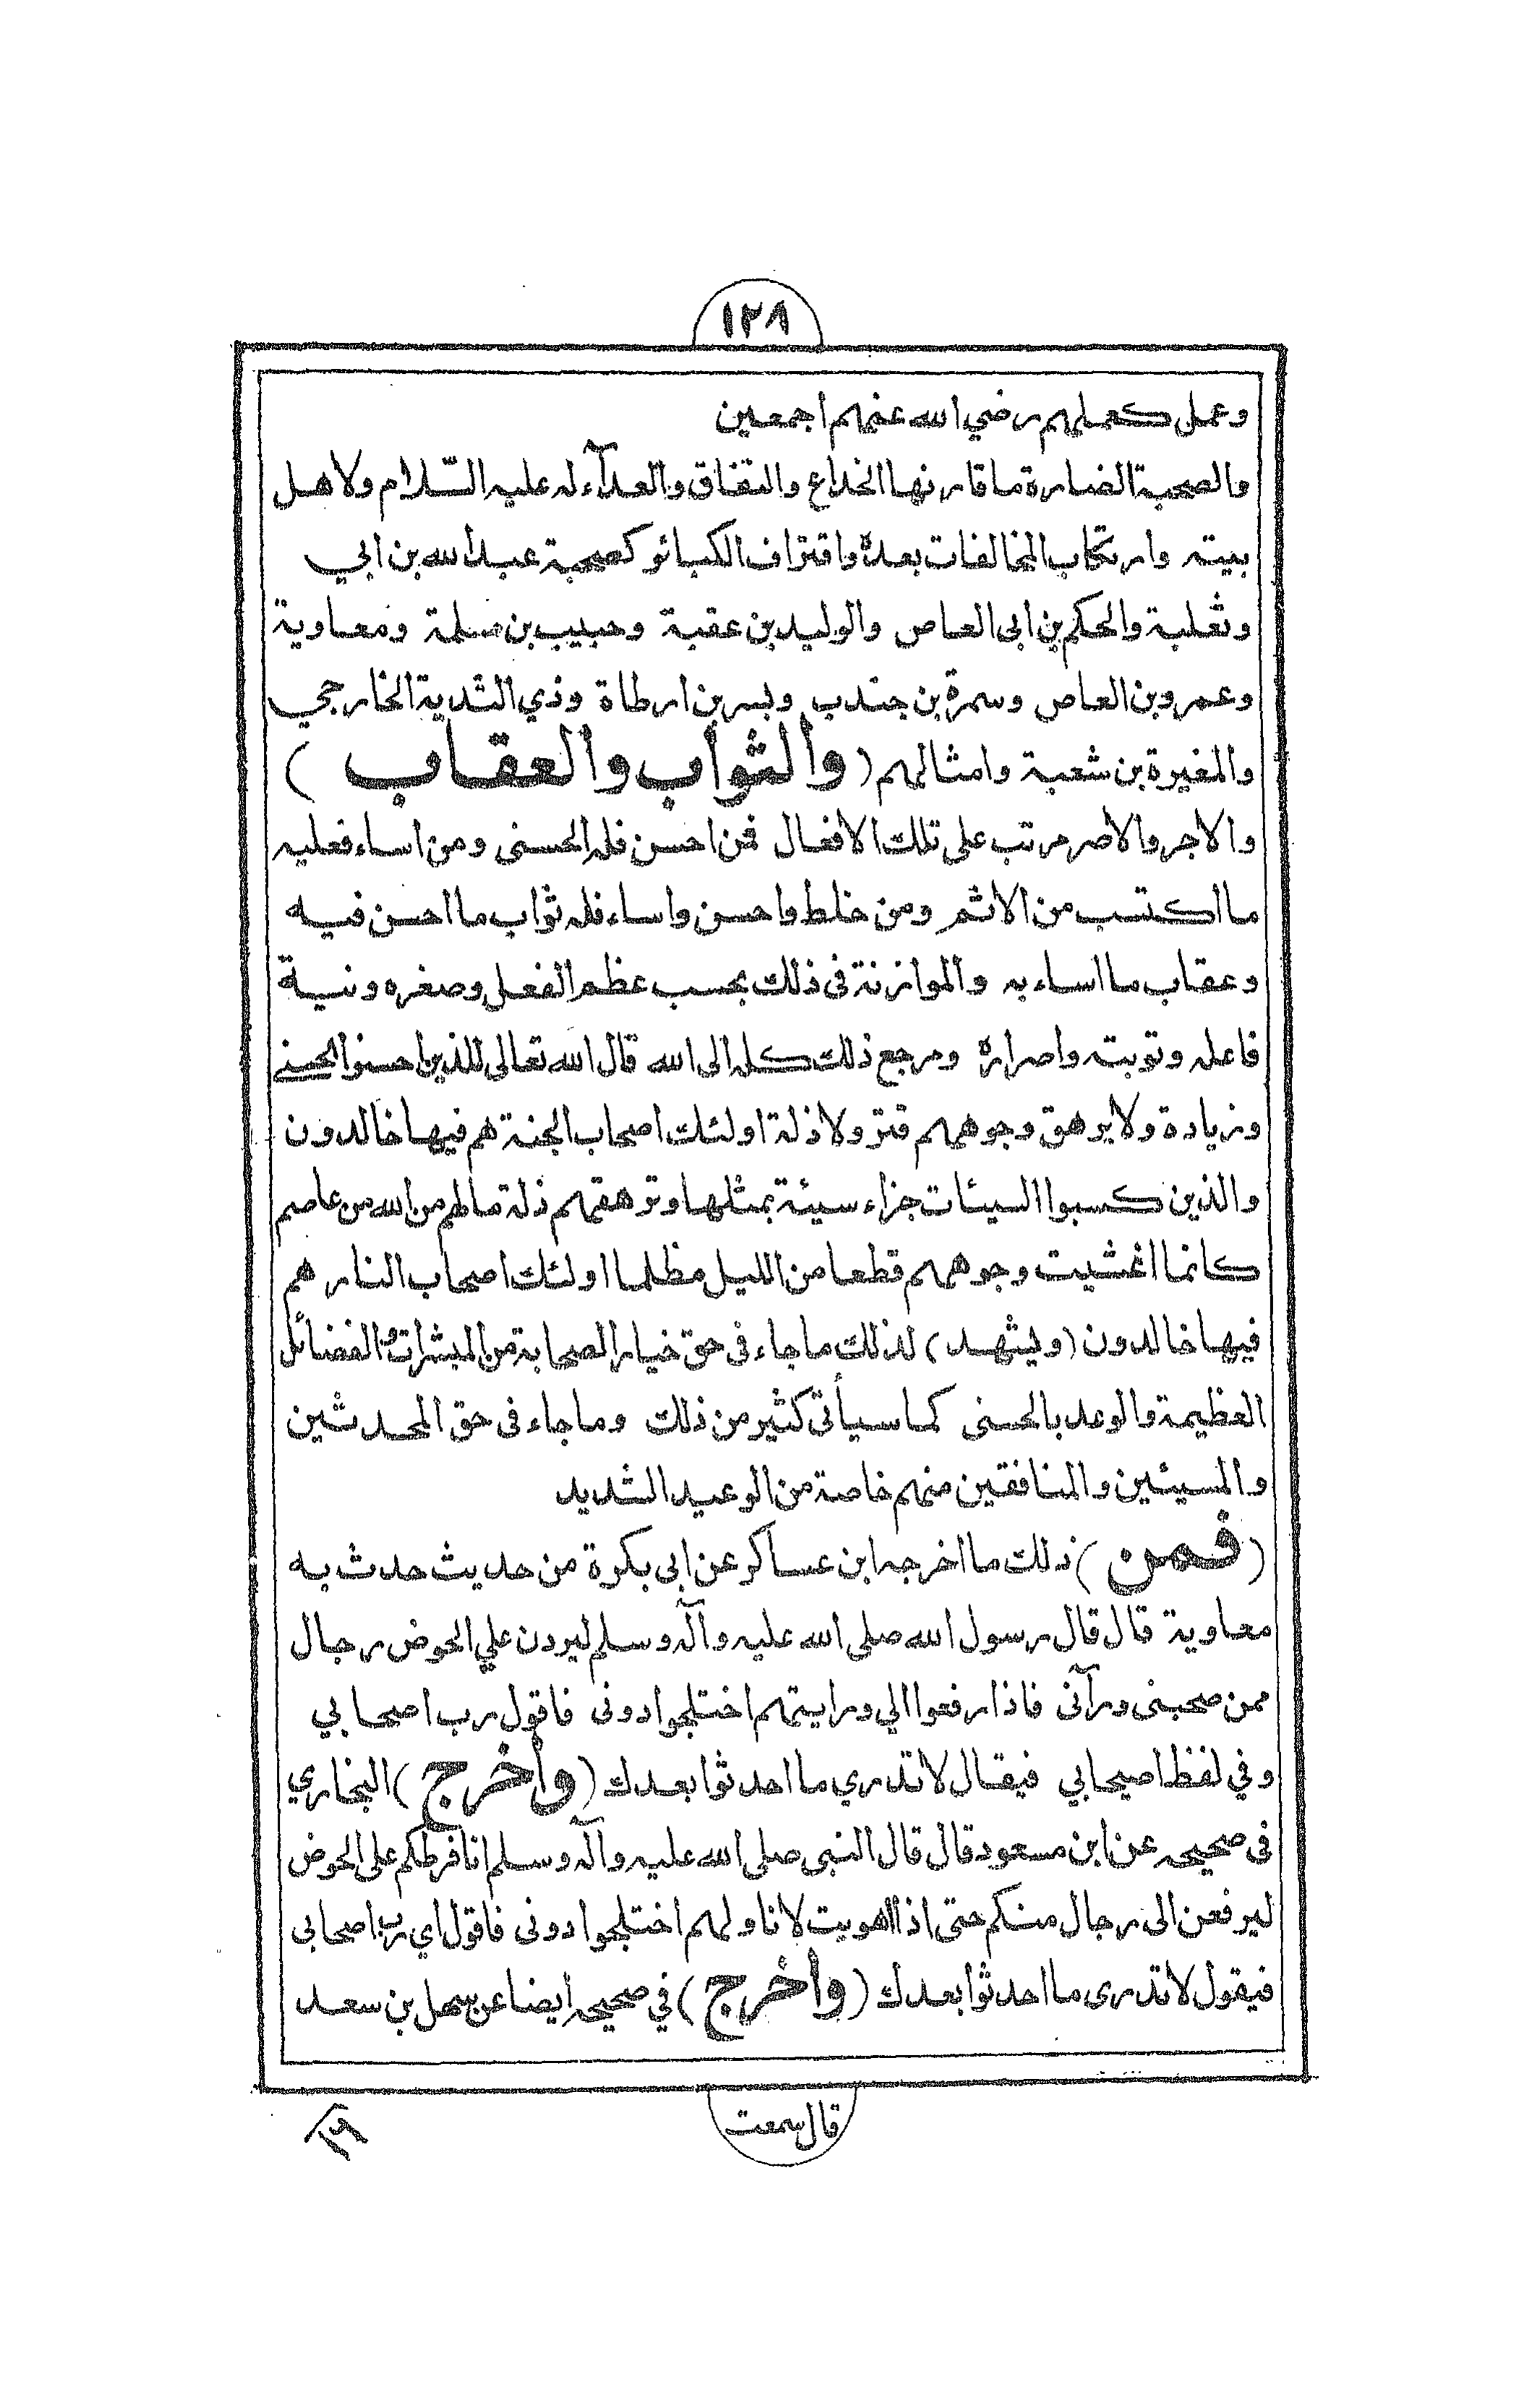 ١٢٨
وعمل كعملهم رضي الله عنهم اجمعين
والصحبة الضارة ما قارنها الخداع والنفاق والعدآء له عليه السّلام ولاهل
بيته وارتكاب المخالفات بعده واقتراف الكبائر كصحبة عبد الله بن ابي
وثعلبة والحكم بن ابى العاص والوليد بن عقبة وحبيب بن مسلمة ومعاوية
وعمرو بن العاص وسمرة بن جندب وبسر بن ارطاة وذي الثدية الخارجي
والمغيرة بن شعبة وامثالهم (والثواب والعقاب)
والاجر والاصر مرتب على تلك الافعال فمن احسن فله الحسنى ومن اساء فعليه
ما اكتسب من الاثم ومن خلط واحسن واساء فله ثواب ما احسن فيه
وعقاب ما اساء به والموازنة فى ذلك بحسب عظم الفعل وصغره ونية
فاعله وتوبته واصراره ومرجع ذلك كله الى الله قال الله تعالى للذين احسنوا الحسنى
وزيادة ولا يرهق وجوههم قتر ولا ذلة اولئك اصحاب الجنة هم فيها خالدون
والذين كسبوا السيئات جزاء سيئة بمثلها وترهقهم ذلة مالهم من الله من عاصم
كانما اغشيت وجوههم قطعا من الليل مظلما اولئك اصحاب النار هم
فيها خالدون (ويشهد) لذلك ما جاء فى حق خيار الصحابة من المبشرات والفضائل
العظيمة والوعد بالحسنى كما سيأتى كثير من ذلك وما جاء فى حق المحدثين
والمسيئين والمنافقين منهم خاصة من الوعيد الشديد
(فمن) ذلك ما اخرجه ابن عساكر عن ابى بكرة من حديث حدث به
معاوية قال قال رسول الله صلى الله عليه وآله وسلم ليردن علي الحوض رجال
ممن صحبنى ورآنى فاذا رفعوا الي ورايتهم اختلجوا دونى فاقول رب اصحابي
وفي لفظ اصيحابي فيقال لا تدري ما احدثوا بعدك (وأخرج) البخاري
فى صحيحه عن ابن مسعود قال قال النبى صلى الله عليه وآله وسلم انا فرطكم على الحوض
ليرفعن الى رجال منكم حتى اذا اهويت لاناولهم اختلجوا دونى فاقول اي رب اصحابى
فيقول لا تدرى ما احدثوا بعدك (وأخرج) في صحيحه ايضا عن سهل بن سعد
قال سمعت